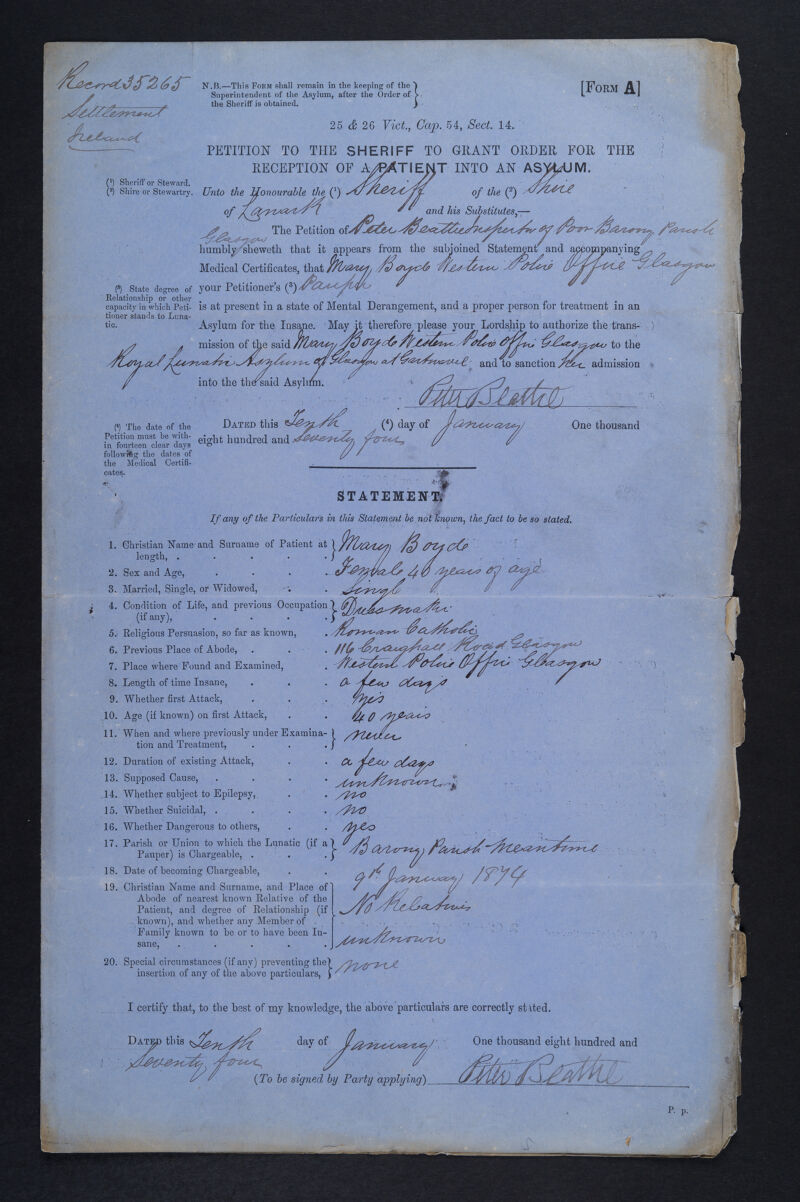 Record 35265
Settlement
Ireland
N.B.—This Form shall remain in the keeping of the
Superintendent of the Asylum, after the Order of
the Sheriff is obtained.
[Form A]
25 & 26 Vict., Cap. 54, Sect. 14.
PETITION TO THE SHERIFF TO GRANT ORDER FOR THE
RECEPTION OF A PATIENT INTO AN ASYLUM.
(¹) Sheriff or Steward.
(²) Shire or Stewartry.
Unto the Honourable the (¹) Sheriff of the (²) Shire
of Lanark and his Substitutes,—
The Petition of Peter Beattie Inspector of Poor Barony Parish
Glasgow
humbly sheweth that it appears from the subjoined Statement and accompanying
Medical Certificates, that Mary Boyde Western Police Office Glasgow
(³) State degree of
Relationship or other
capacity in which Peti-
tioner stands to Luna-
tic.
your Petitioner's (³) Pauper
is at present in a state of Mental Derangement, and a proper person for treatment in an
Asylum for the Insane. May it therefore please your Lordship to authorize the trans-
mission of the said Mary Boyde Western Police Office Glasgow to the
Royal Lunatic Asylum of Glasgow at Gartnavel, and to sanction her admission
into the the said Asylum.
Peter Beattie
(⁴) The date of the
Petition must be with-
in fourteen clear days
following the dates of
the Medical Certifi-
cates.
Dated this Tenth (⁴) day of January One thousand
eight hundred and Seventy four
STATEMENT.
If any of the Particulars in this Statement be not known, the fact to be so stated.
1. Christian Name and Surname of Patient at
length, . . . . . Mary Boyde
2. Sex and Age, . . . . Female 40 years of age
3. Married, Single, or Widowed, . . Single
4. Condition of Life, and previous Occupation
(if any), . . . . Dressmaker
5. Religious Persuasion, so far as known, . Roman Catholic
6. Previous Place of Abode, . . . 116 Craighall Road Glasgow
7. Place where Found and Examined, . Western Police Office Glasgow
8. Length of time Insane, . . . a few days
9. Whether first Attack, . . . Yes
10. Age (if known) on first Attack, . . 40 years
11. When and where previously under Examina-
tion and Treatment, . . . never
12. Duration of existing Attack, . . a few days
13. Supposed Cause, . . . . unknown
14. Whether subject to Epilepsy, . . no
15. Whether Suicidal, . . . . no
16. Whether Dangerous to others, . . yes
17. Parish or Union to which the Lunatic (if a
Pauper) is Chargeable, . . . Barony Parish Meantime
18. Date of becoming Chargeable, . . 9th January 1874
19. Christian Name and Surname, and Place of
Abode of nearest known Relative of the
Patient, and degree of Relationship (if No Relatives
known), and whether any Member of
Family known to be or to have been In-
sane, . . . . . unknown
20. Special circumstances (if any) preventing the
insertion of any of the above particulars, none
I certify that, to the best of my knowledge, the above particulars are correctly stated.
Dated this Tenth day of January One thousand eight hundred and
Seventy four
(To be signed by Party applying) Peter Beattie
P. p.